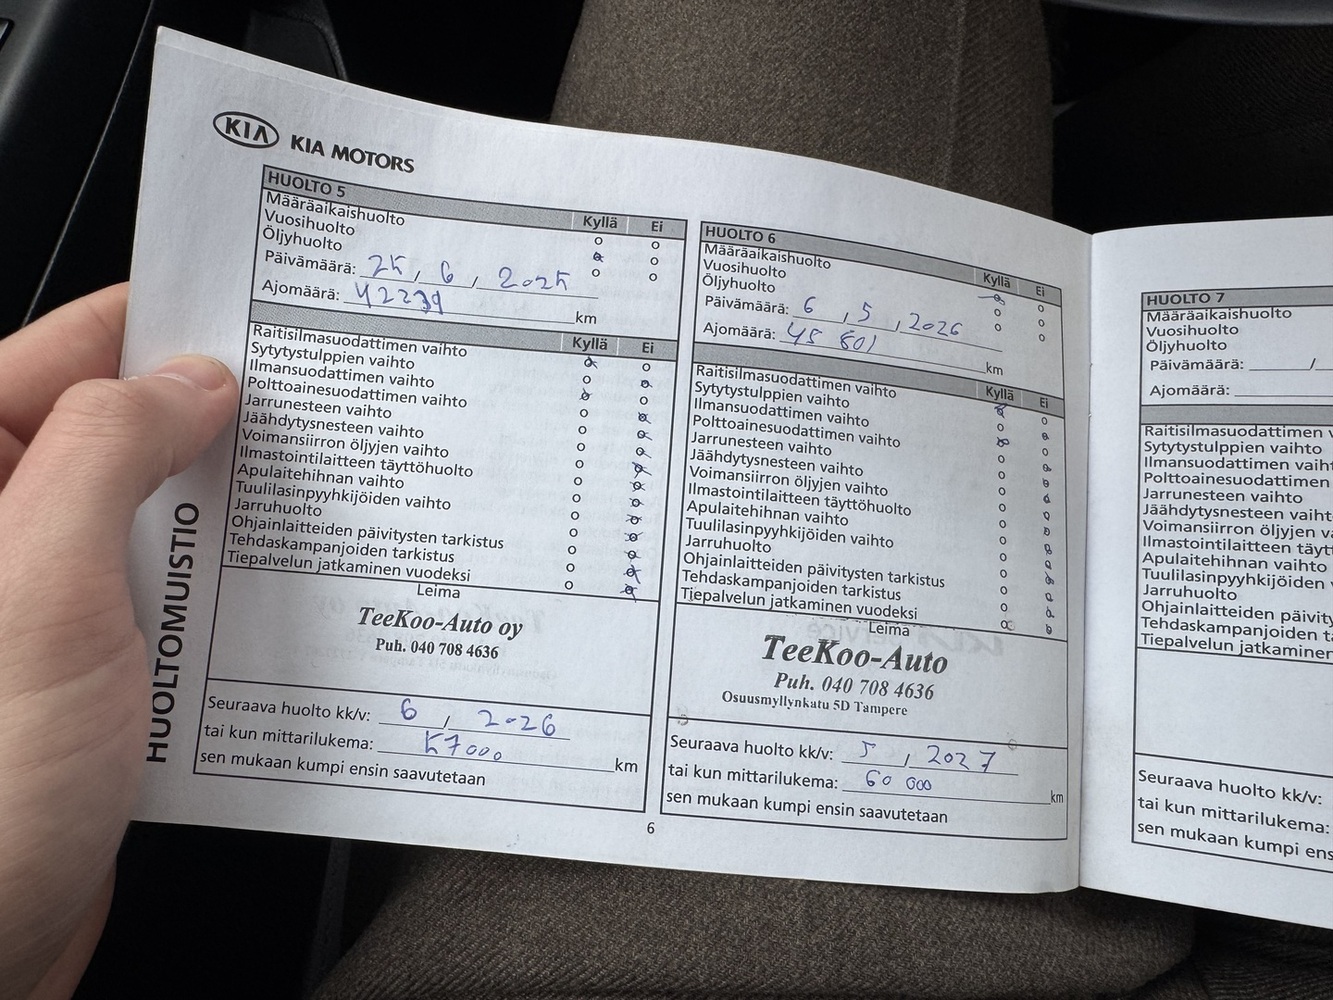 KIA KIA MOTORS
HUOLTOMUISTIO
HUOLTO 5
Kyllä Ei
Määräaikaishuolto
Vuosihuolto
Öljyhuolto
Päivämäärä: 25, 6, 2025
Ajomäärä: 42239 km
Kyllä Ei
Raitisilmasuodattimen vaihto
Sytytystulppien vaihto
Ilmansuodattimen vaihto
Polttoainesuodattimen vaihto
Jarrunesteen vaihto
Jäähdytysnesteen vaihto
Voimansiirron öljyjen vaihto
Ilmastointilaitteen täyttöhuolto
Apulaitehihnan vaihto
Tuulilasinpyyhkijöiden vaihto
Jarruhuolto
Ohjainlaitteiden päivitysten tarkistus
Tehdaskampanjoiden tarkistus
Tiepalvelun jatkaminen vuodeksi
Leima
TeeKoo-Auto oy
Puh. 040 708 4636
Seuraava huolto kk/v: 6 / 2026
tai kun mittarilukema: 57000 km
sen mukaan kumpi ensin saavutetaan
HUOLTO 6
Kyllä Ei
Määräaikaishuolto
Vuosihuolto
Öljyhuolto
Päivämäärä: 6, 5, 2026
Ajomäärä: 45 801 km
Kyllä Ei
Raitisilmasuodattimen vaihto
Sytytystulppien vaihto
Ilmansuodattimen vaihto
Polttoainesuodattimen vaihto
Jarrunesteen vaihto
Jäähdytysnesteen vaihto
Voimansiirron öljyjen vaihto
Ilmastointilaitteen täyttöhuolto
Apulaitehihnan vaihto
Tuulilasinpyyhkijöiden vaihto
Jarruhuolto
Ohjainlaitteiden päivitysten tarkistus
Tehdaskampanjoiden tarkistus
Tiepalvelun jatkaminen vuodeksi
Leima
TeeKoo-Auto
Puh. 040 708 4636
Osuusmyllynkatu 5D Tampere
Seuraava huolto kk/v: 5, 2027
tai kun mittarilukema: 60 000 km
sen mukaan kumpi ensin saavutetaan
6
HUOLTO 7
Määräaikaishuolto
Vuosihuolto
Öljyhuolto
Päivämäärä: /
Ajomäärä:
Raitisilmasuodattimen v
Sytytystulppien vaihto
Ilmansuodattimen vaiht
Polttoainesuodattimen
Jarrunesteen vaihto
Jäähdytysnesteen vaiht
Voimansiirron öljyjen va
Ilmastointilaitteen täytt
Apulaitehihnan vaihto
Tuulilasinpyyhkijöiden
Jarruhuolto
Ohjainlaitteiden päivity
Tehdaskampanjoiden ta
Tiepalvelun jatkaminen
Seuraava huolto kk/v:
tai kun mittarilukema:
sen mukaan kumpi ens